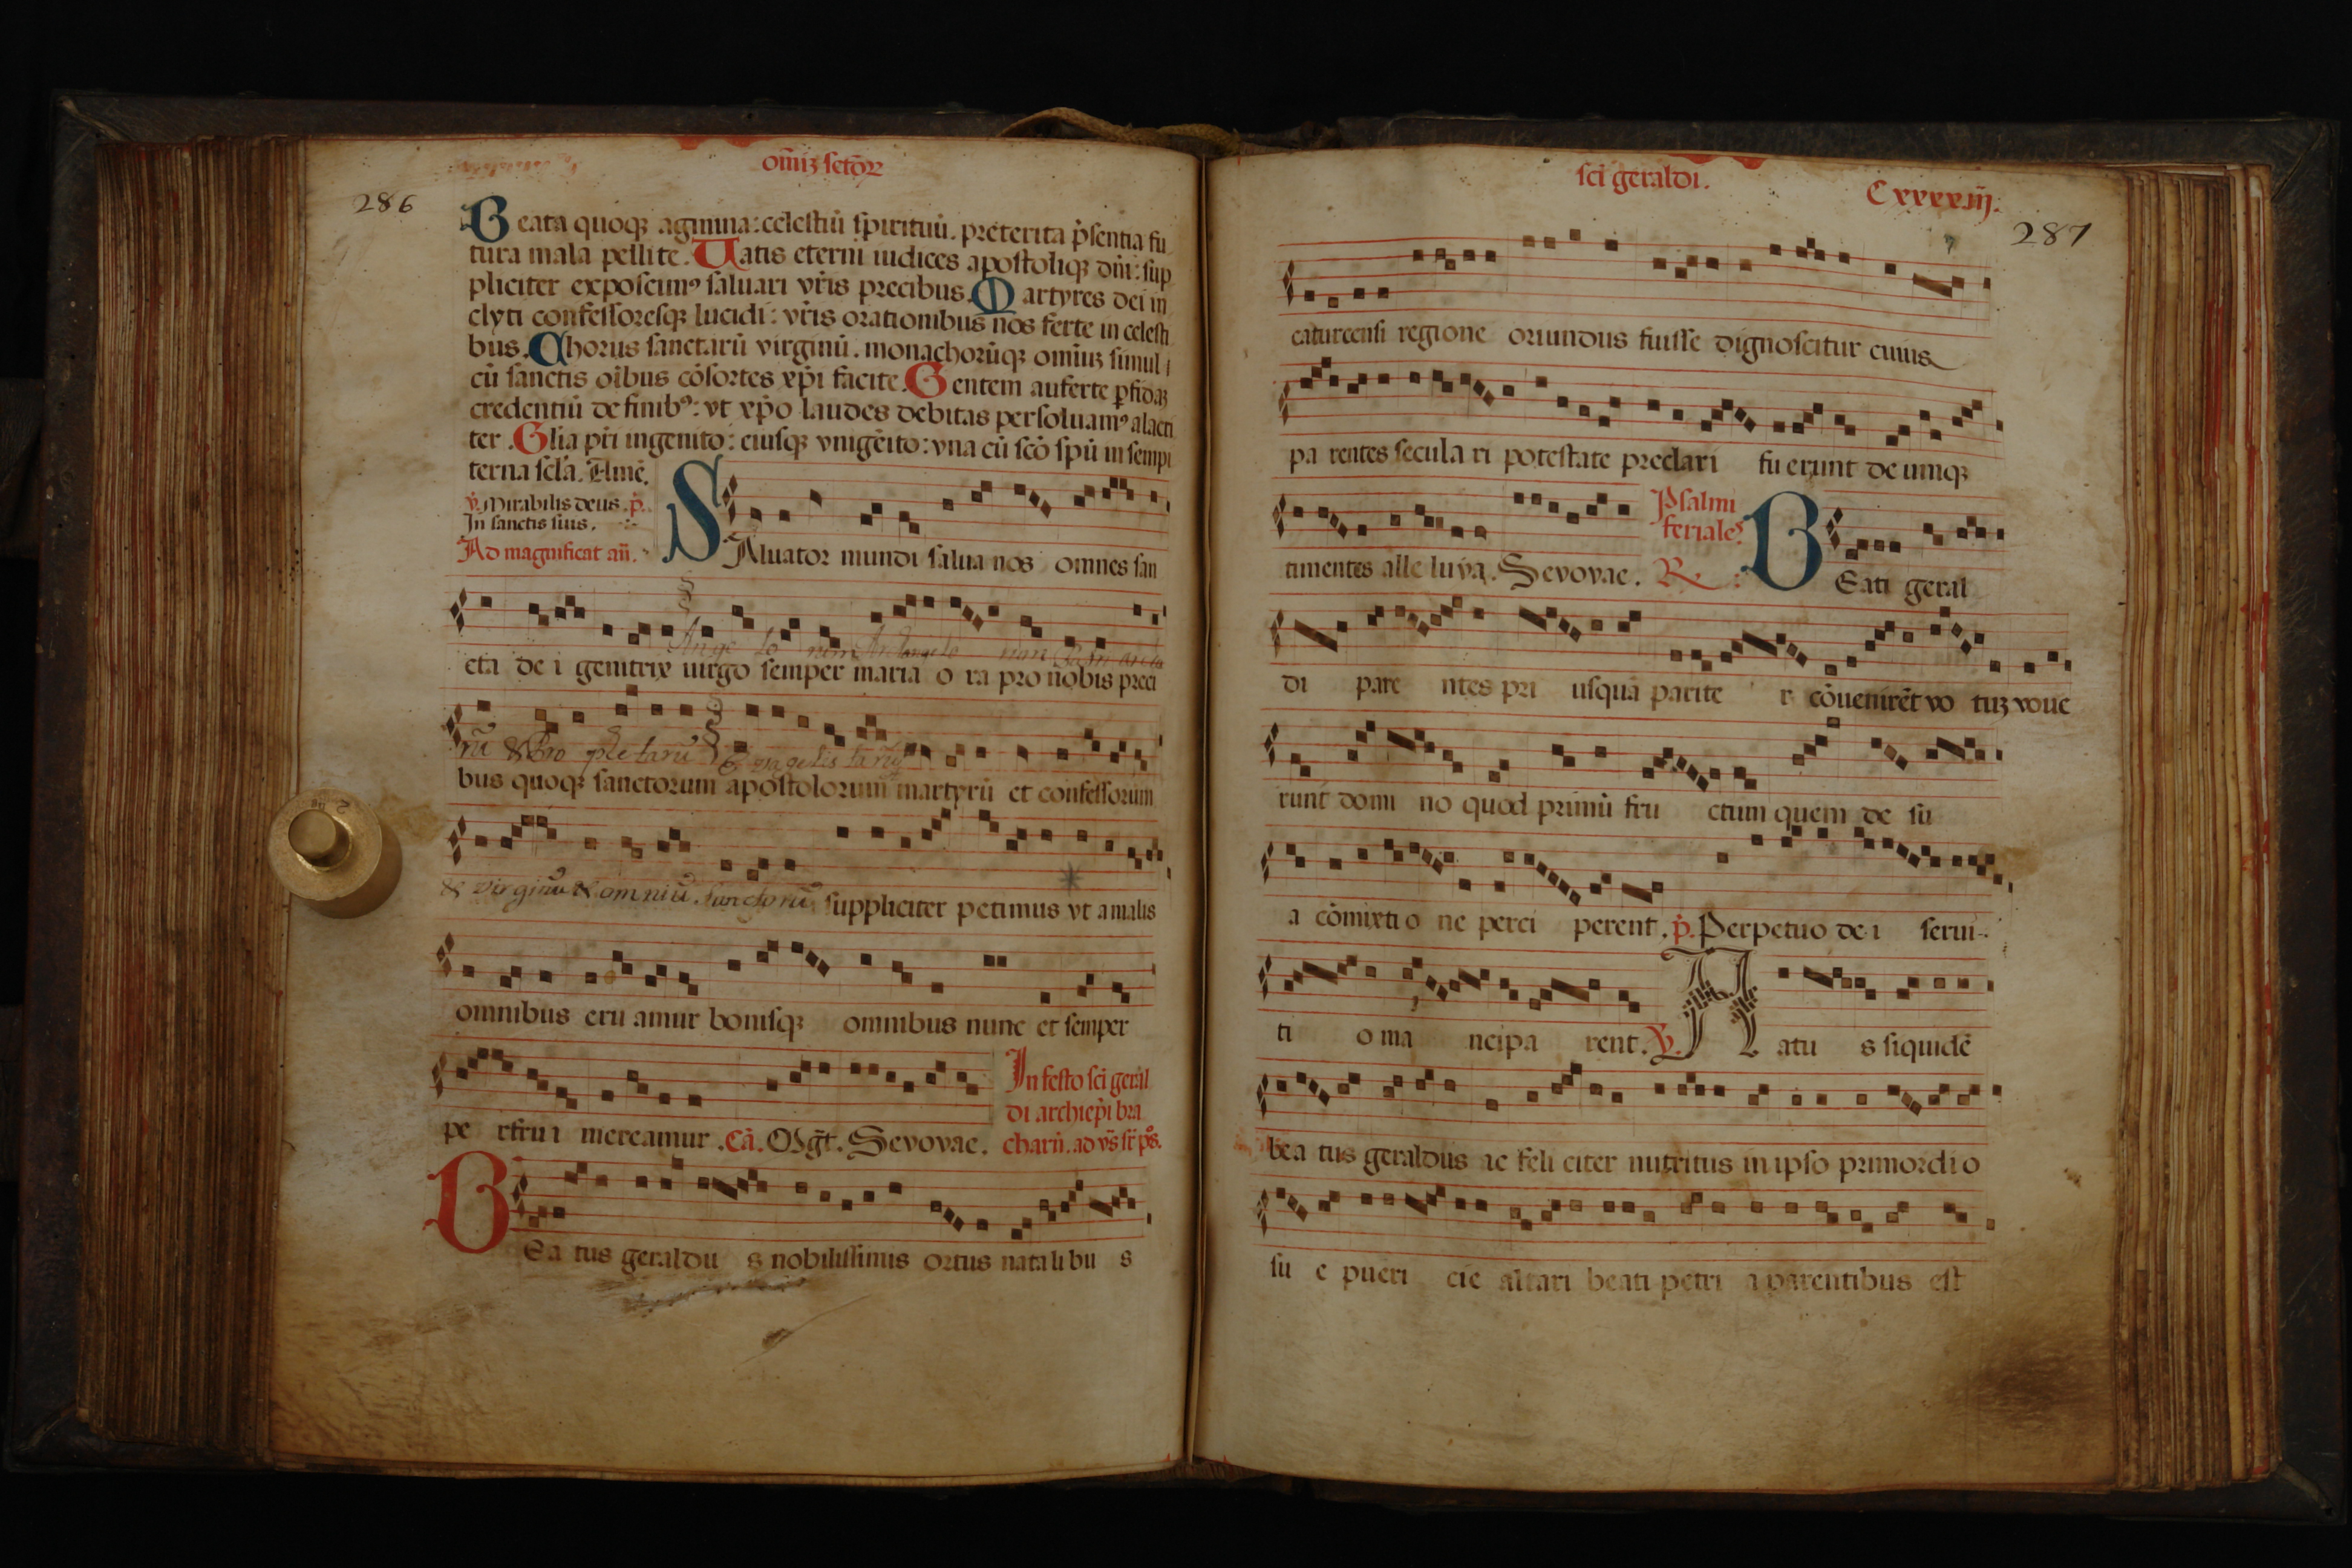 om̄iȝ sctōꝝ
286
Beata quoqꝫ agmina: celestiū spirituū. preterita p̄sentia fu
tura mala pellite. Vatis eterni iudices apostoliqꝫ dn̄i: sup
pliciter exposcimꝰ saluari vr̄is precibus. Martyres dei in
clyti confessoresqꝫ lucidi: vr̄is orationibus nos ferte in celesti
bus. Chorus sanctarū virginū. monachorūqꝫ omniuꝫ simul
cū sanctis oībus cōsortes xp̄i facite. Gentem auferte ꝑfidaꝫ
credentiū de finibꝰ: vt xp̄o laudes debitas persoluamꝰ alacri
ter. Glīa pr̄i ingenito: eiusqꝫ vnigēito: vna cū scō spū in sempi
terna scl̄a. Amē.
v̇. Mirabilis deus. ṗ.
In sanctis suis.
Ad magnificat an̄.
SAluator mundi salua nos omnes san
Ange lo rum Archange lo rum
cta de i genitrix uirgo semper maria o ra pro nobis preci
rū & Pro phe tarū Evangelis tarū
bus quoqꝫ sanctorum apostolorum martyrū et confessorum
& virginū & omniū sanctorū suppliciter petimus vt a malis
omnibus eru amur bonisqꝫ omnibus nunc et semper
pe rfrui mereamur. Cā. Mḡt. Sevovae.
In festo sci geral
di archiep̄i bra
charū. ad vs̄ sr̄ pōs.
BEa tus geraldu s nobilissimus ortus natali bu s
sci geraldi.
Cxxxxiij.
287
caturcensi regione oriundus fuisse dignoscitur cuius
pa rentes secula ri potestate preclari fu erunt de umqꝫ
timentes alle luya. Sevovae.
Psalmi
feriales.
R
BEati geral
di pare ntes pri usquā parite r cōuenirēt vo tuꝫ voue
runt domi no quod primū fru ctum quem de su
a cōmixti o ne perci perent. ṗ. Perpetuo de i serui
ti o ma ncipa rent. v̇. Natu s siquidē
bea tus geraldus ac feli citer nutritus in ipso primordi o
su e pueri cie altari beati petri a parentibus est